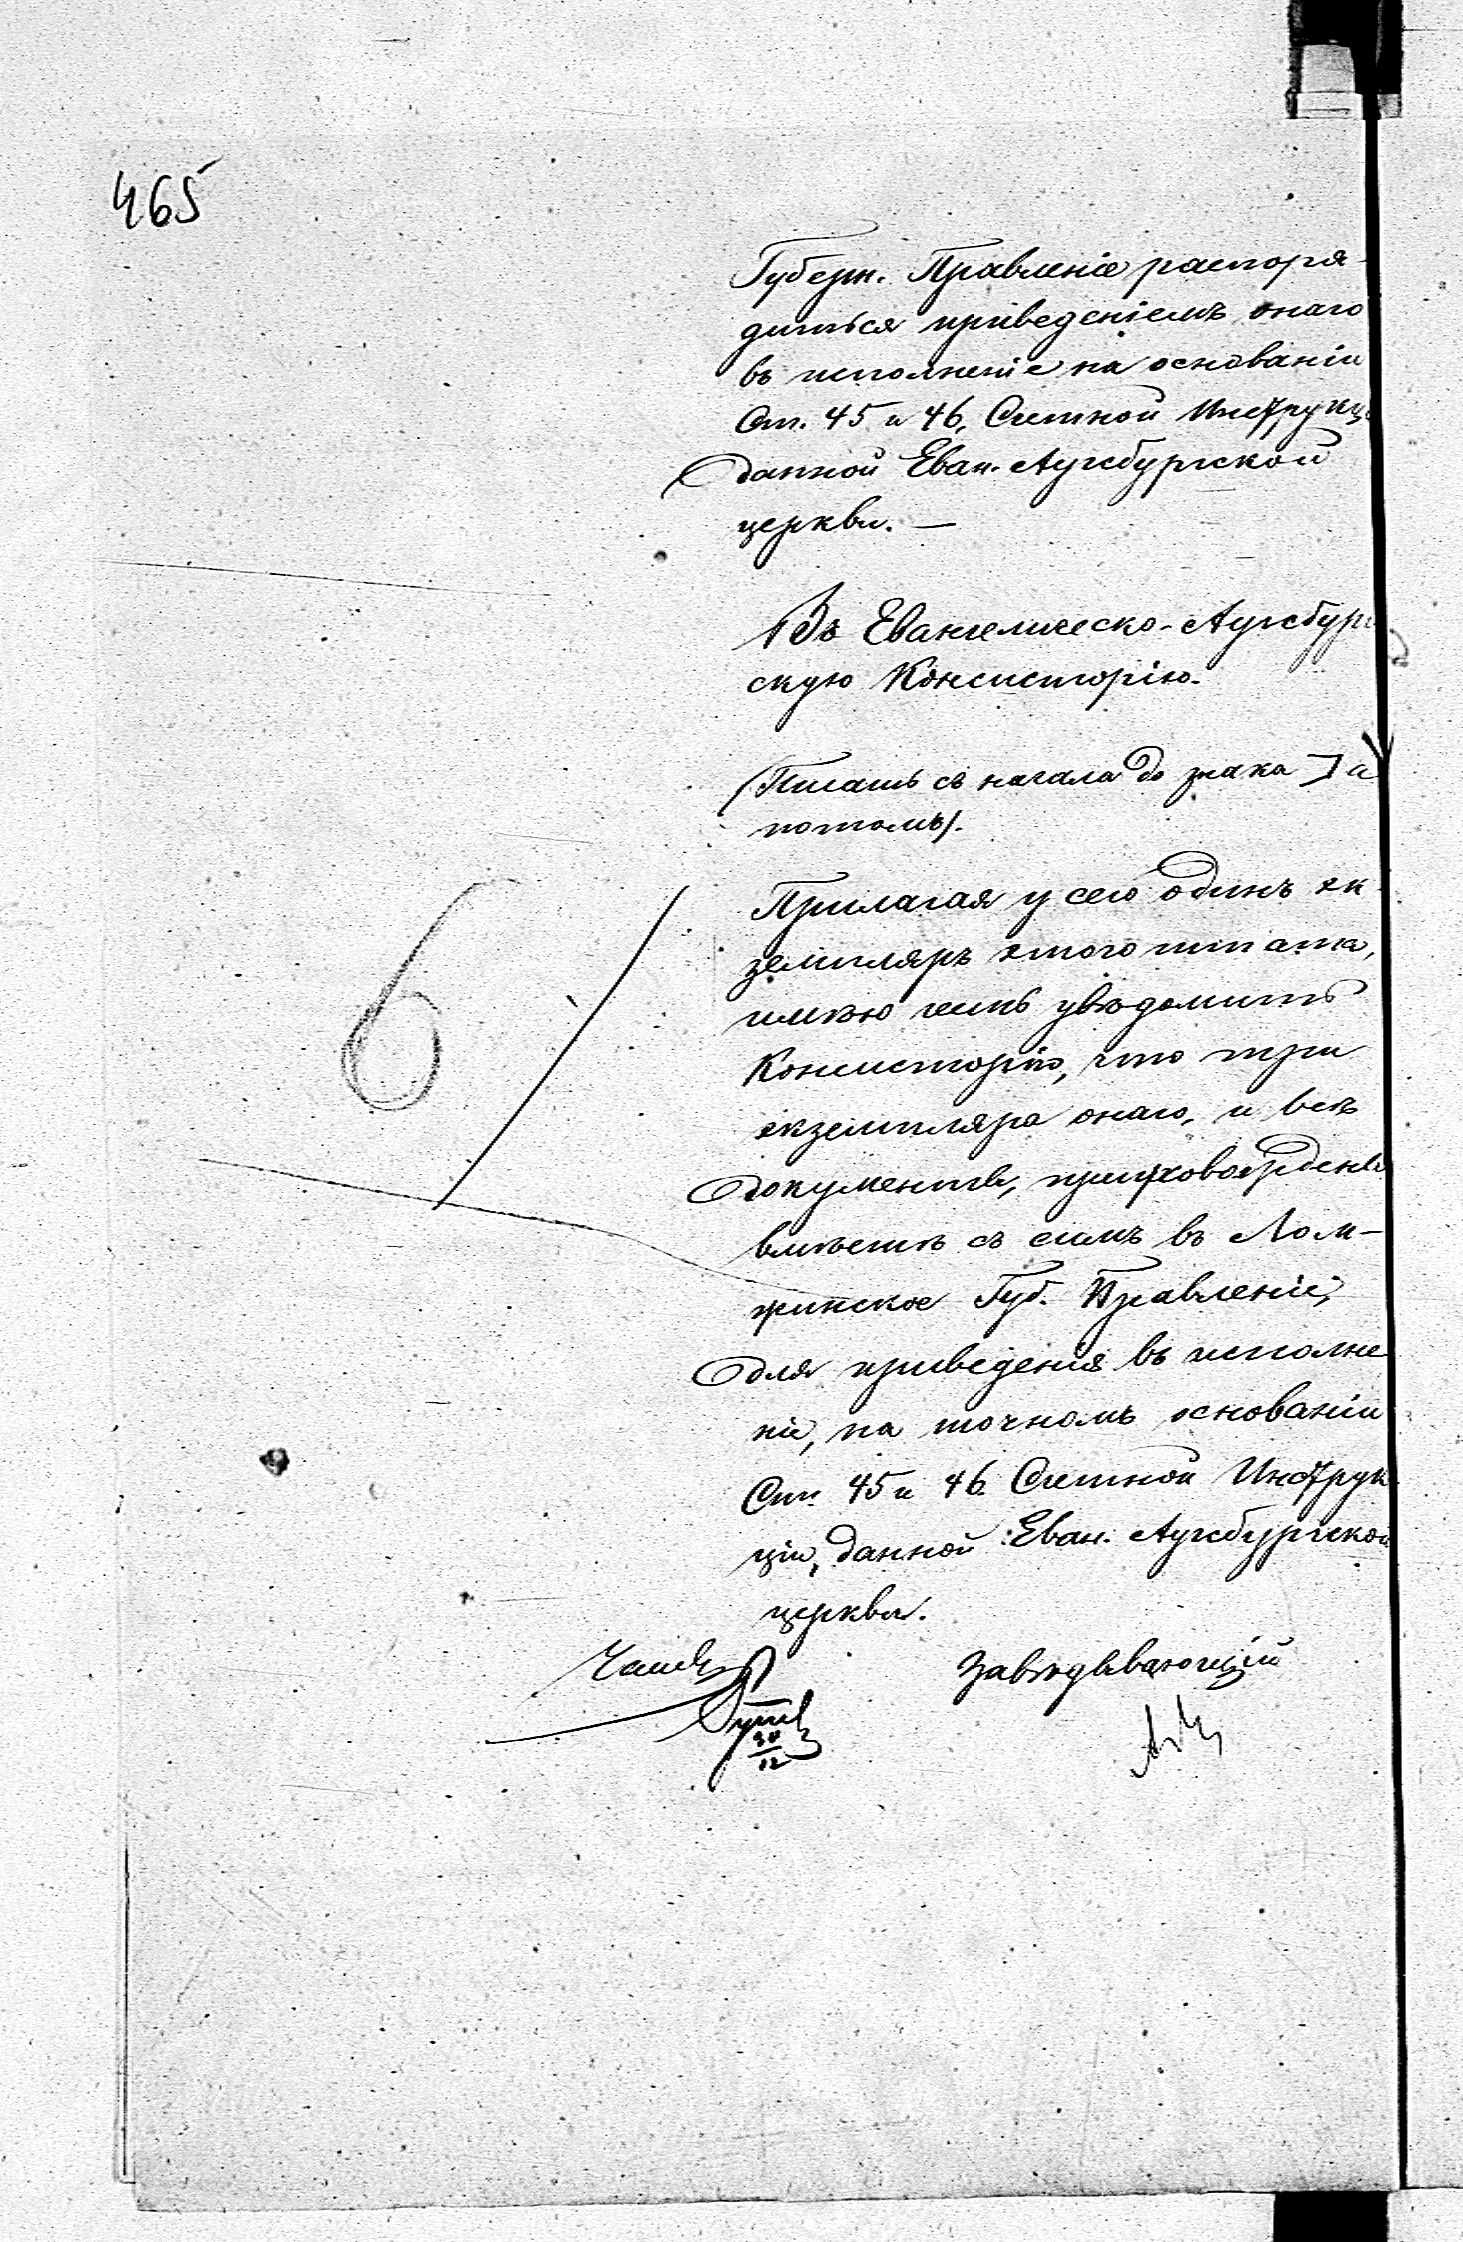 465
Губерн. Правленіе распоря-
диться приведеніемъ онаго
въ исполненіе на основаніи
Ст. 45 и 46, Счетной Инструкц
данной Еван. Аугсбургской
церкви. —
Въ Евангелическо-Аугсбург
скую Консисторію.
(Писать съ начала до знака ] а
потомъ).
Прилагая у сего одинъ эк-
земпляръ этого штата,
имѣю честь увѣдомить
Консисторію, что три
экземпляра онаго, и всѣ
документы, препровождены
вмѣстѣ съ симъ въ Лом-
жинское Губ. Правленіе,
для приведенія въ исполне
ніе, на точномъ основаніи
Ст. 45 и 46 Счетной Инструк
ціи, данной Еван. Аугсбургской
церкви.
Завѣдывающій
30
12